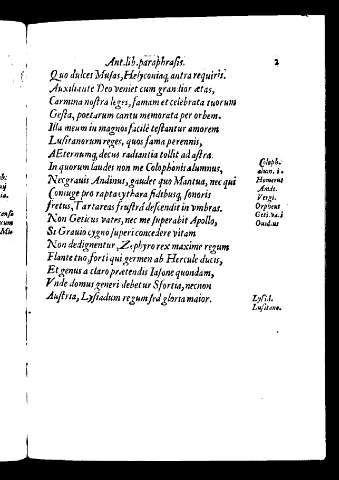 Ant. lib. paraphrasis. 2
Quo dulces Musas, Helyconiaq; antra requiris.
Auxiliante Deo veniet cum grandior ætas,
Carmina nostra leges, famam et celebrata tuorum
Gesta, poetarum cantu memorata per orbem.
Illa meum in magnos facilè testantur amorem
Lusitanorum reges, quos fama perennis,
AEternumq; decus radiantia tollit ad astra.
In quorum laudes non me Colophonis alumnus,
Colopho.
alum. i.
Necgrauis Andinus, gaudet quo Mantua, nec qui
Homerus
Andi.
Coniuge pro rapta cythara fidibusq; sonoris
Vergi.
fretus, Tartareas frustrà descendit in vmbras.
Orpheus
Non Geticus vates, nec me superabit Apollo,
Geti. va. i
Ouidius
Si Grauio cygno superi concedere vitam
Non dedignentur, Zephyro rex maxime regum
Flante tuo, forti qui germen ab Hercule ducis,
Et genus a claro prætendis Iasone quondam,
Vnde domus generi debetur Sfortia, necnon
Austria, Lysiadum regum sed gloria maior.
Lysi. i.
Lusitano.